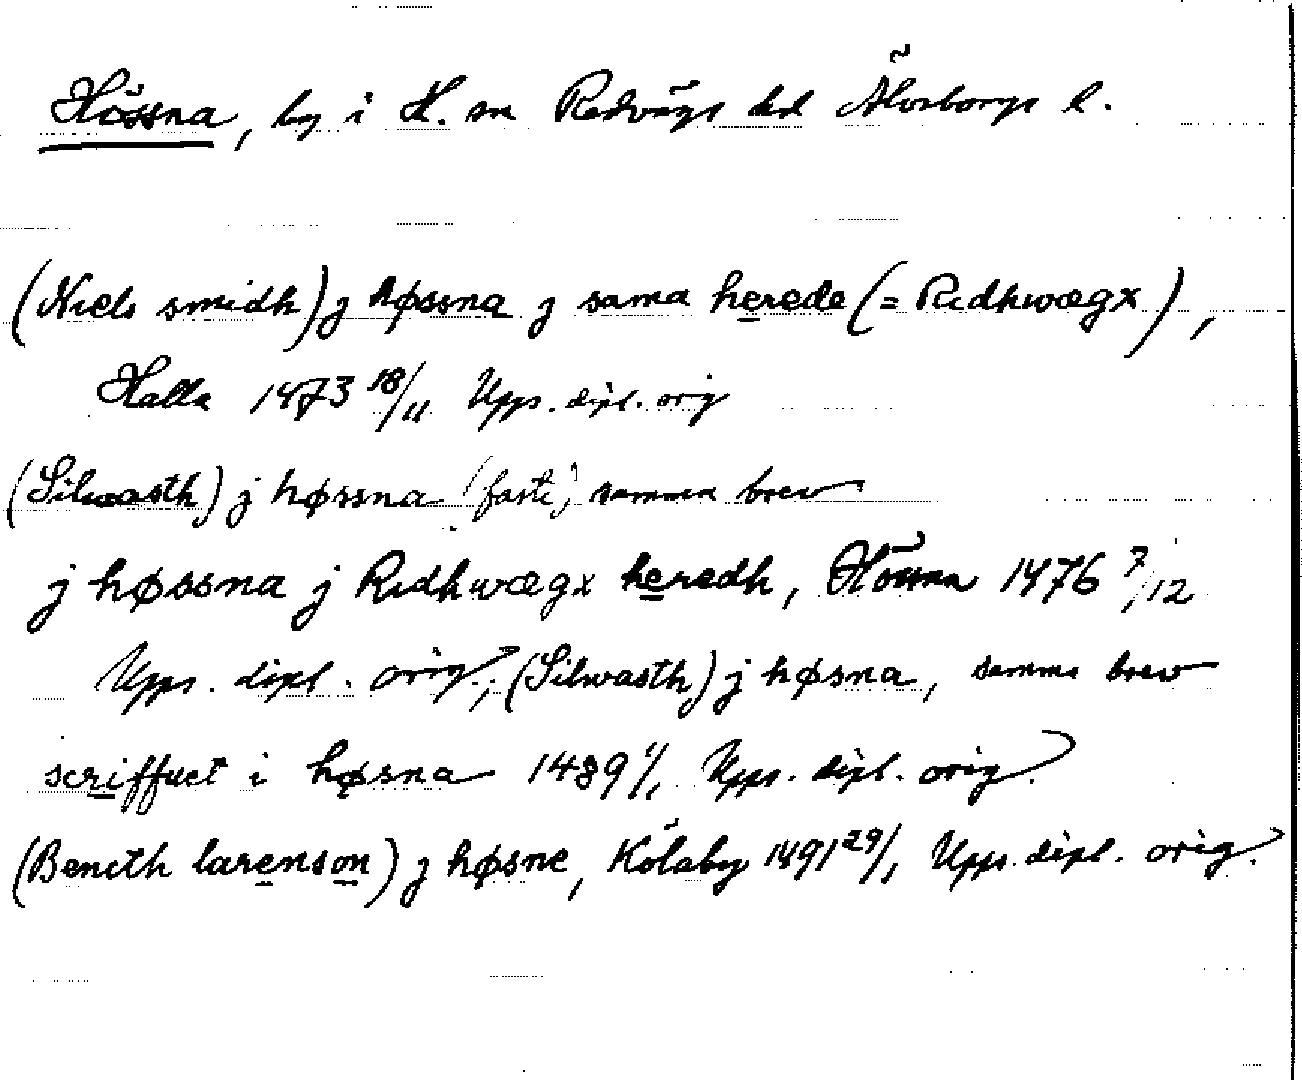 Hössna, by i H. sn Redvägs hd Älvsborgs l.
(Niels smidh) j høssna j sama herede (= Ridhwægx),
Halla 1473 18/11 Upps. dipl. orig
(Silwasth) j høssna (faste), samma brev
j høssna j Ridhwægx heredh, Hössna 1476 7/12
Upps. dipl. orig.; (Silwasth) j høsna, samma brev
scriffuet i høsna 1489 1/1 Upps. dipl. orig.
(Bencth larenson) j høsne, Kölaby 1491 29/1 Upps. dipl. orig.